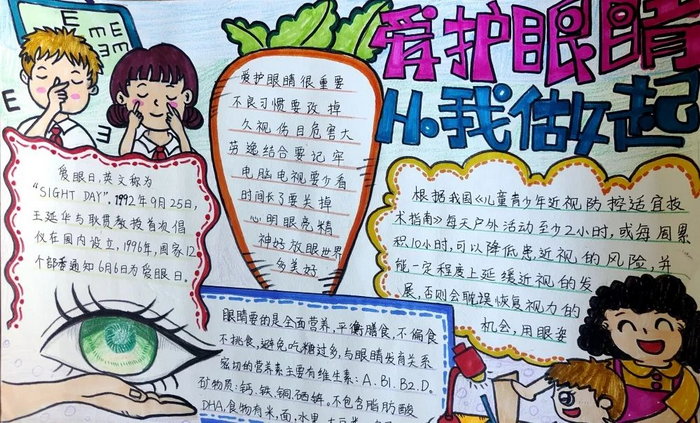 爱护眼睛
从我做起
E
E
m
E
E
爱眼日,英文称为
"SIGHT DAY".1992年9月25日,
王延华与耿贯教授首次倡
仪在国内设立,1996年,国家12
个部委通知 6月6日为爱眼日.
爱护眼睛很重要
不良习惯要改掉
久视伤目危害大
劳逸结合要记牢
电脑电视要少看
时间长了要关掉
心明眼亮精
神好放眼世界
多美好
根据我国《儿童青少年近视防控适宜技
术指南》每天户外活动至少2小时,或每周累
积10小时,可以降低患近视的风险,并
能一定程度上延缓近视的发
展,否则会耽误恢复视力的
机会,用眼姿
眼睛要的是全面营养,平衡膳食,不偏食
不挑食,避免吃糖过多,与眼睛发育关系
密切的营养素主要有维生素:A.B1.B2.D.
矿物质:钙.铁.铜.硒.锌.不包含脂肪酸
DHA,食物有米,面,水里